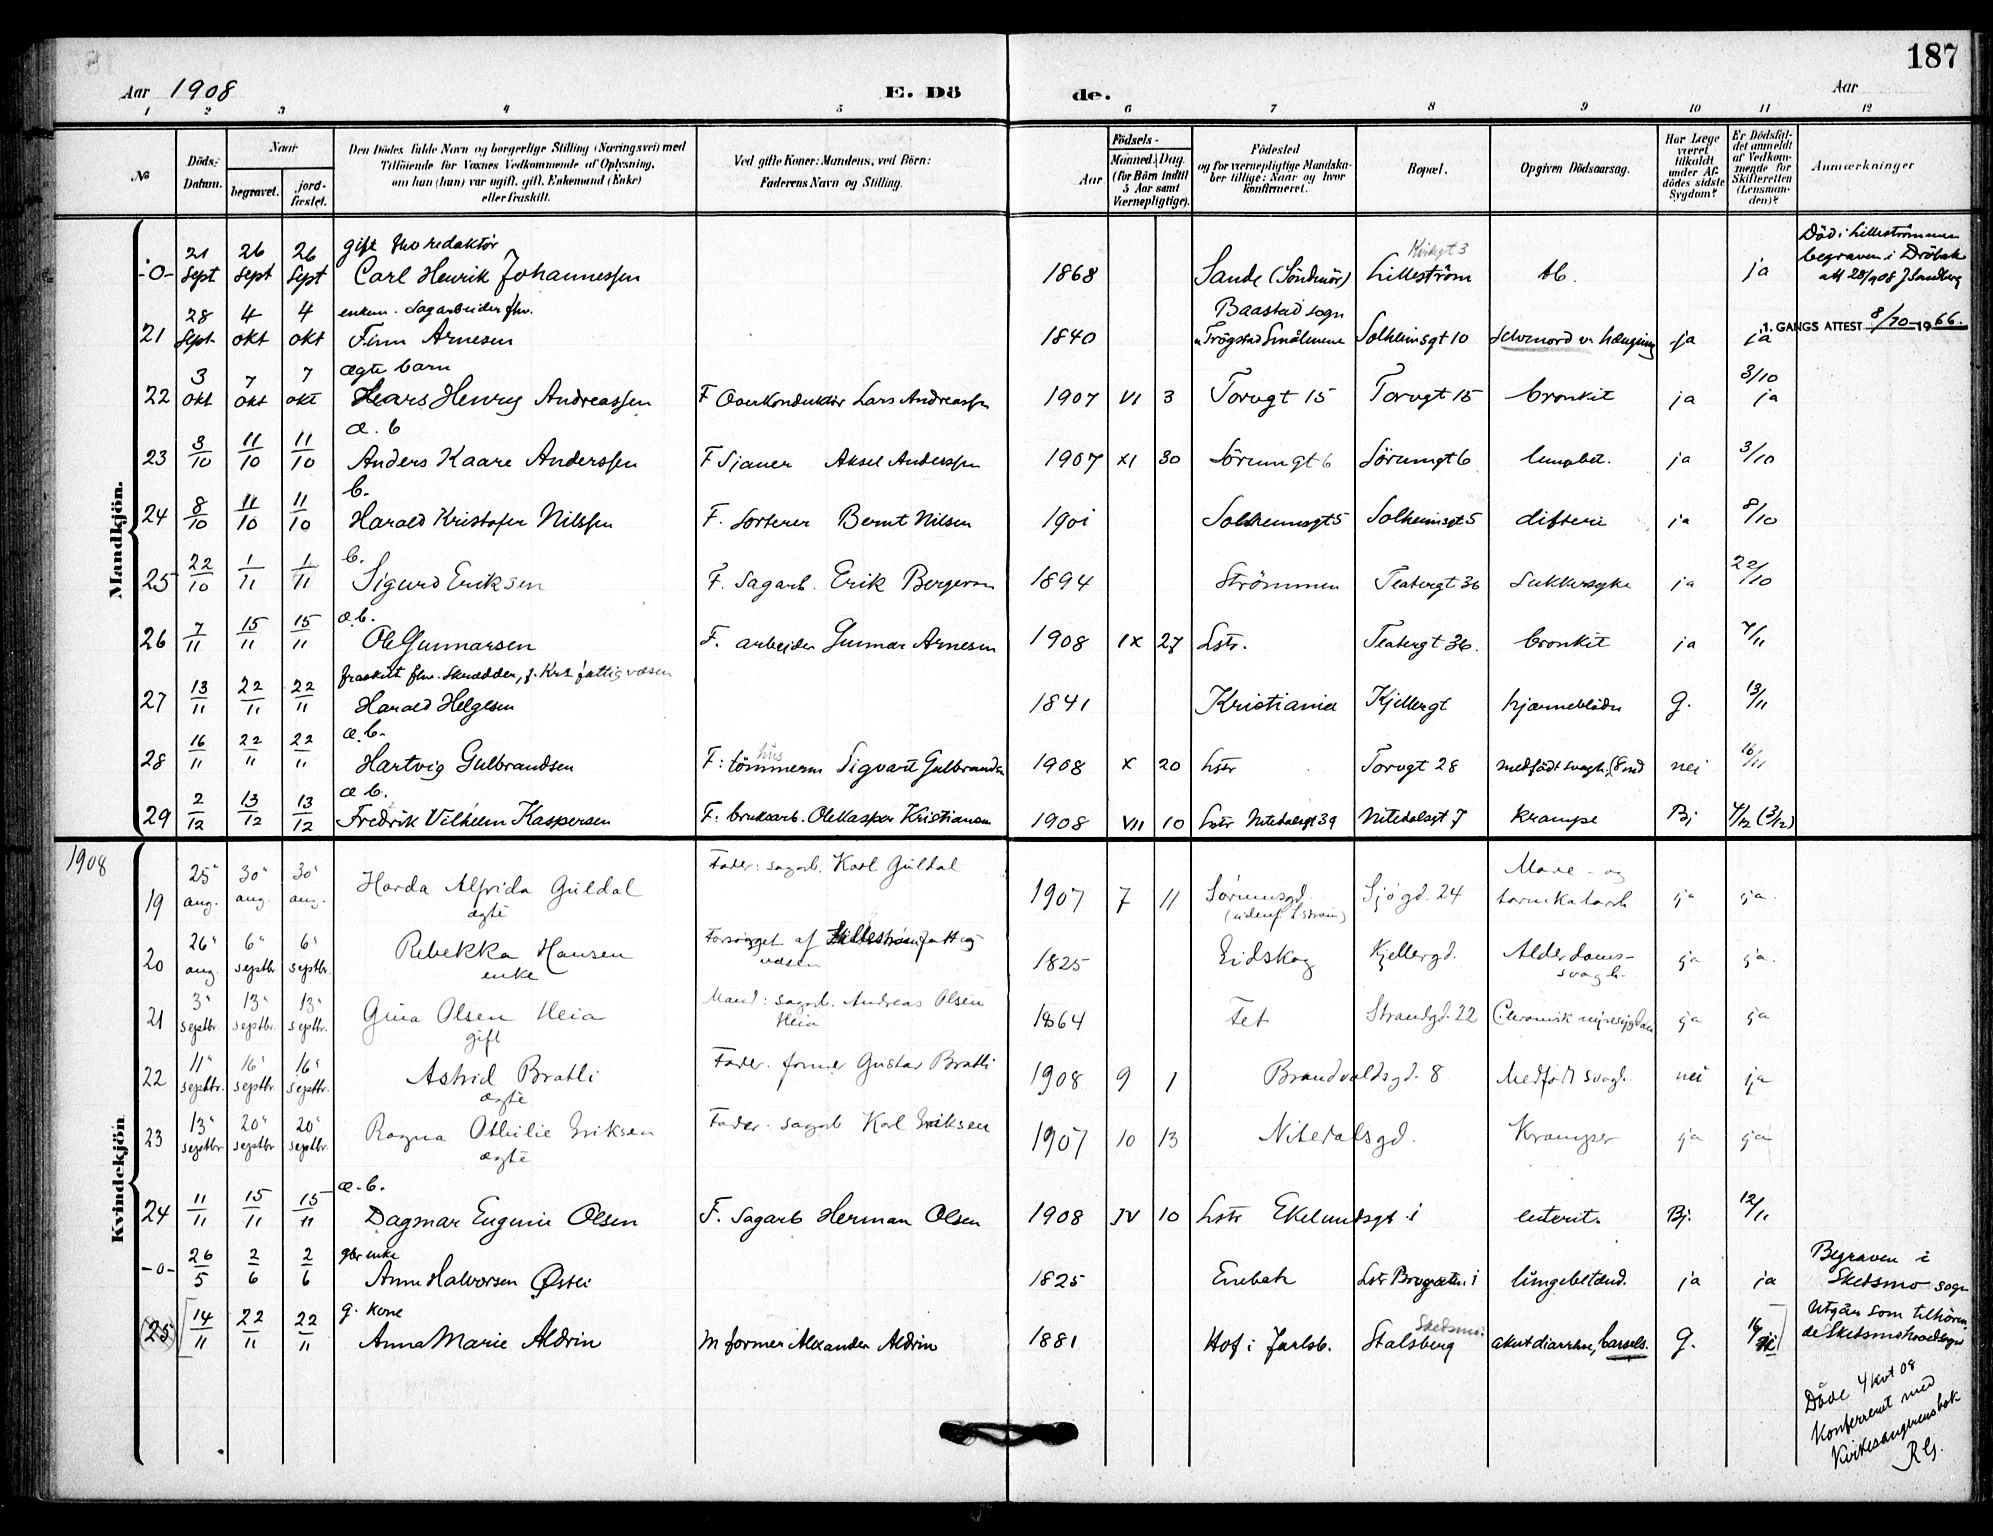 187
Aar 1908 E. Dö de. Aar
1 2 3 4 5 6 7 8 9 10 11 12
No
Döds-Datum.
Naar
begravet.
jord-fæstet.
Den Dödes fulde Navn og borgerlige Stilling (Næringsvei) med
Tilföiende for Voxnes Vedkommende af Oplysning,
om han (hun) var ugift, gift, Enkemand (Enke)
eller fraskilt.
Ved gifte Koner: Mandens, ved Börn:
Faderens Navn og Stilling.
Födsels-
Aar
Maaned. Dag.
(for Börn indtil
5 Aar samt
Værnepligtige).
Födested
og for værnepligtige Mandska-
ber tillige: Naar og hvor
konfirmeret.
Bopæl.
Opgiven Dödsaarsag.
Har Læge
været
tilkaldt
under Af-
dödes sidste
Sygdom?
Er Dödsfal-
det anmeldt
af Vedkom-
mende for
Skifteretten
(Lensman-
den)?
Anmærkninger
Mandkjön.
-0- 21 Sept 26 Sept 26 Sept gift fhv redaktör Carl Henrik Johannessen 1868 Sande (Söndmör) Kirkegt 3 Lilleström tb. ja Död i Lilleströmmen begraven i Dröbak att 28/9 08 J Sandberg
21 28 Sept 4 okt 4 okt enkem. Sagarbeider fhv. Finn Arnesen 1840 Baastad sogn Trögstad Smålenene Solheimsgt 10 Selvmord v. hængning ja ja 1. GANGS ATTEST 8/10-1966.
22 3 okt 7 okt 7 okt ægte barn Lars Henry Andreassen F Overkonduktör Lars Andreassen 1907 VI 3 Torvgt 15 Torvgt 15 bronkit ja 3/10 ja
23 3/10 11/10 11/10 æ. b Anders Kaare Anderssen F Sjauer Aksel Anderssen 1907 XI 30 Sörumgt 6 Sörumgt 6 lungbet. ja 3/10
24 8/10 11/10 11/10 b. Harald Kristofer Nilssen F. Sorterer Bernt Nilsen 1901 Solheimsgt 5 Solheimsgt 5 difteri ja 8/10
25 22/10 1/11 1/11 b. Sigurd Eriksen F. Sagarb. Erik Bergersen 1894 Strömmen Teatergt 36 Sukkersyke ja 22/10
26 7/11 15/11 15/11 æ.b. Ole Gunnarsen F. arbeider Gunnar Arnesen 1908 IX 27 Lstr. Teatergt 36. bronkit ja 7/11
27 13/11 22/11 22/11 fraskilt fhv. skrædder, f. Krs fattigvæsen Harald Helgesen 1841 Kristiania Kjellergt hjærneblödn G. 13/11
28 16/11 22/11 22/11 æ.b. Hartvig Gulbrandsen F: hus tömmerm Sigvart Gulbrandsen 1908 X 20 Lstr Torvgt 28 medfödt svagh. (8 md nei 16/11
29 2/12 13/12 13/12 æ b. Fredrik Vilhelm Kaspersen F. bruksarb. Ole Kasper Kristiansen 1908 VII 10 Lstr Nitedalsgt 39 Nitedalsgt 7 krampe Bj 4/12 (3/12)
1908
Kvindekjön
19 25 aug. 30 aug. 30 aug. Harda Alfrida Güldal ægte Fader: sagarb. Karl Güldal 1907 7 11 Sörumsgd. (udenf. Lström) Sjögd. 24 Mave- og tarmkatarrh ja ja.
20 26 aug. 6 septbr. 6 septbr. Rebekka Hansen enke Forsörget af Lilleströms fattigvæsen 1825 Eidskog Kjellergd. Alderdoms-svagh. ja ja.
21 3 septbr. 13 septbr. 13 septbr. Gina Olsen Heia gift Mand: sagarb. Andreas Olsen Heia 1864 Fet Strandgd. 22 Chronisk nyresygdom ja ja
22 11 septbr. 16 septbr. 16 septbr. Astrid Bratli ægte Fader. former Gustav Bratli 1908 9 1 Brandvoldsgd. 8 Medfödt svagh. nei ja
23 13 septbr. 20 septbr 20 septbr. Ragna Othilie Eriksen ægte Fader: sagarb Karl Eriksen 1907 10 13 Nitedalsgd. Kramper ja ja
24 11/11 15/11 15/11 æ.b. Dagmar Eugenie Olsen F. Sagarb Herman Olsen 1908 IV 10 Lstr Ekelundsgt 1 enterit. Bj. 12/11
-0- 26/5 2/6 2/6 gbr enke Anne Halvorsen Østli 1825 Enebak Lstr Brogaten 1 lungebetænd. ja ja Begraven i Skedsmo sogn
(25) 14/11 22/11 22/11 g. kone Anna Marie Aldrin M former Alexander Aldrin 1881 Hof i Jarlsb. Stalsberg Skedsmo. akut diarrhoe, barsels. G. 16/11 Utgår som tilhören-de Skedsmo hovedsogn
Döde 4 kvt 08
Konferert med
Kirkesangerens bok
RG.